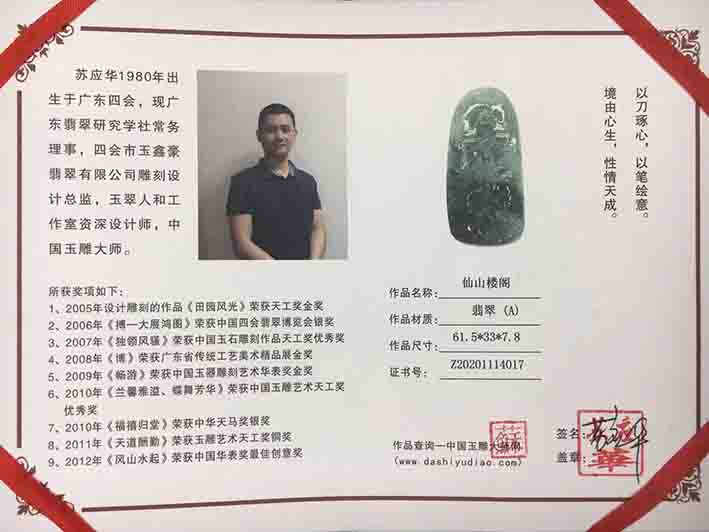 苏应华1980年出
生于广东四会，现广
东翡翠研究学社常务
理事，四会市玉鑫豪
翡翠有限公司雕刻设
计总监，玉翠人和工
作室资深设计师，中
国玉雕大师。
以刀琢心，以笔绘意。
境由心生，性情天成。
所获奖项如下：
1、2005年设计雕刻的作品《田园风光》荣获天工奖金奖
2、2006年《搏—大展鸿图》荣获中国四会翡翠博览会银奖
3、2007年《独领风骚》荣获中国玉石雕刻作品天工奖优秀奖
4、2008年《博》荣获广东省传统工艺美术精品展金奖
5、2009年《畅游》荣获中国玉器雕刻艺术华表奖金奖
6、2010年《兰馨雅溢、蝶舞芳华》荣获中国玉雕艺术天工奖
优秀奖
7、2010年《福禧归堂》荣获中华天马奖银奖
8、2011年《天道酬勤》荣获玉雕艺术天工奖铜奖
9、2012年《风山水起》荣获中国华表奖最佳创意奖
作品名称： 仙山楼阁
作品材质： 翡翠 (A)
作品尺寸： 61.5*33*7.8
证书号： Z20201114017
作品查询—中国玉雕大师网
(www.dashiyudiao.com)
签名：苏应华
盖章：